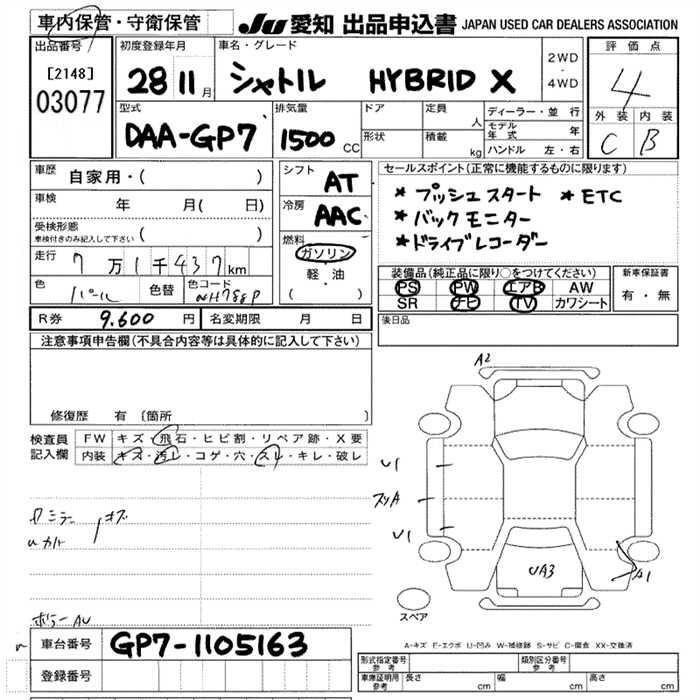 車内保管・守衛保管 JU 愛知 出品申込書 JAPAN USED CAR DEALERS ASSOCIATION
出品番号 初度登録年月 車名・グレード 評価点
[2148] 28 11月 シャトル HYBRID X 2WD・4WD 4
03077
型式 排気量 ドア 定員 人 ディーラー・並行 外装 内装
DAA-GP7 1500 CC モデル年式 年 C B
形状 積載 kg ハンドル 左・右
車歴 自家用・( ) シフト AT セールスポイント(正常に機能するものに限ります)
車検 年 月( 日) 冷房 AAC * プッシュスタート * ETC
受検形態 * バックモニター
車検付きのみ記入して下さい 燃料 ガソリン * ドライブレコーダー
走行 7万1千437km 軽・油
( )
装備品(純正品に限り○をつけてください) 新車保証書
PS PW エアB AW 有・無
SR ナビ TV カワシート
色 パール 色替 色コード NH788P
R券 9,600円 名変期限 月 日 後日品
注意事項申告欄(不具合内容等は具体的に記入して下さい)
修復歴 有 〔箇所 〕
検査員記入欄 FW キズ・飛石・ヒビ割・リペア跡・X要
内装 キズ・汚レ・コゲ・穴・スレ・キレ・破レ
A2
U1
A
U1
UA3
A1
ミラー キズ
スペア
A-キズ E-エクボ U-凹み W-補修跡 S-サビ C-腐食 XX-交換済
車台番号 GP7-1105163
登録番号
形式指定番号 参考 類別区分番号 参考
車庫証明用 参考 長さ cm 幅 cm 高さ cm